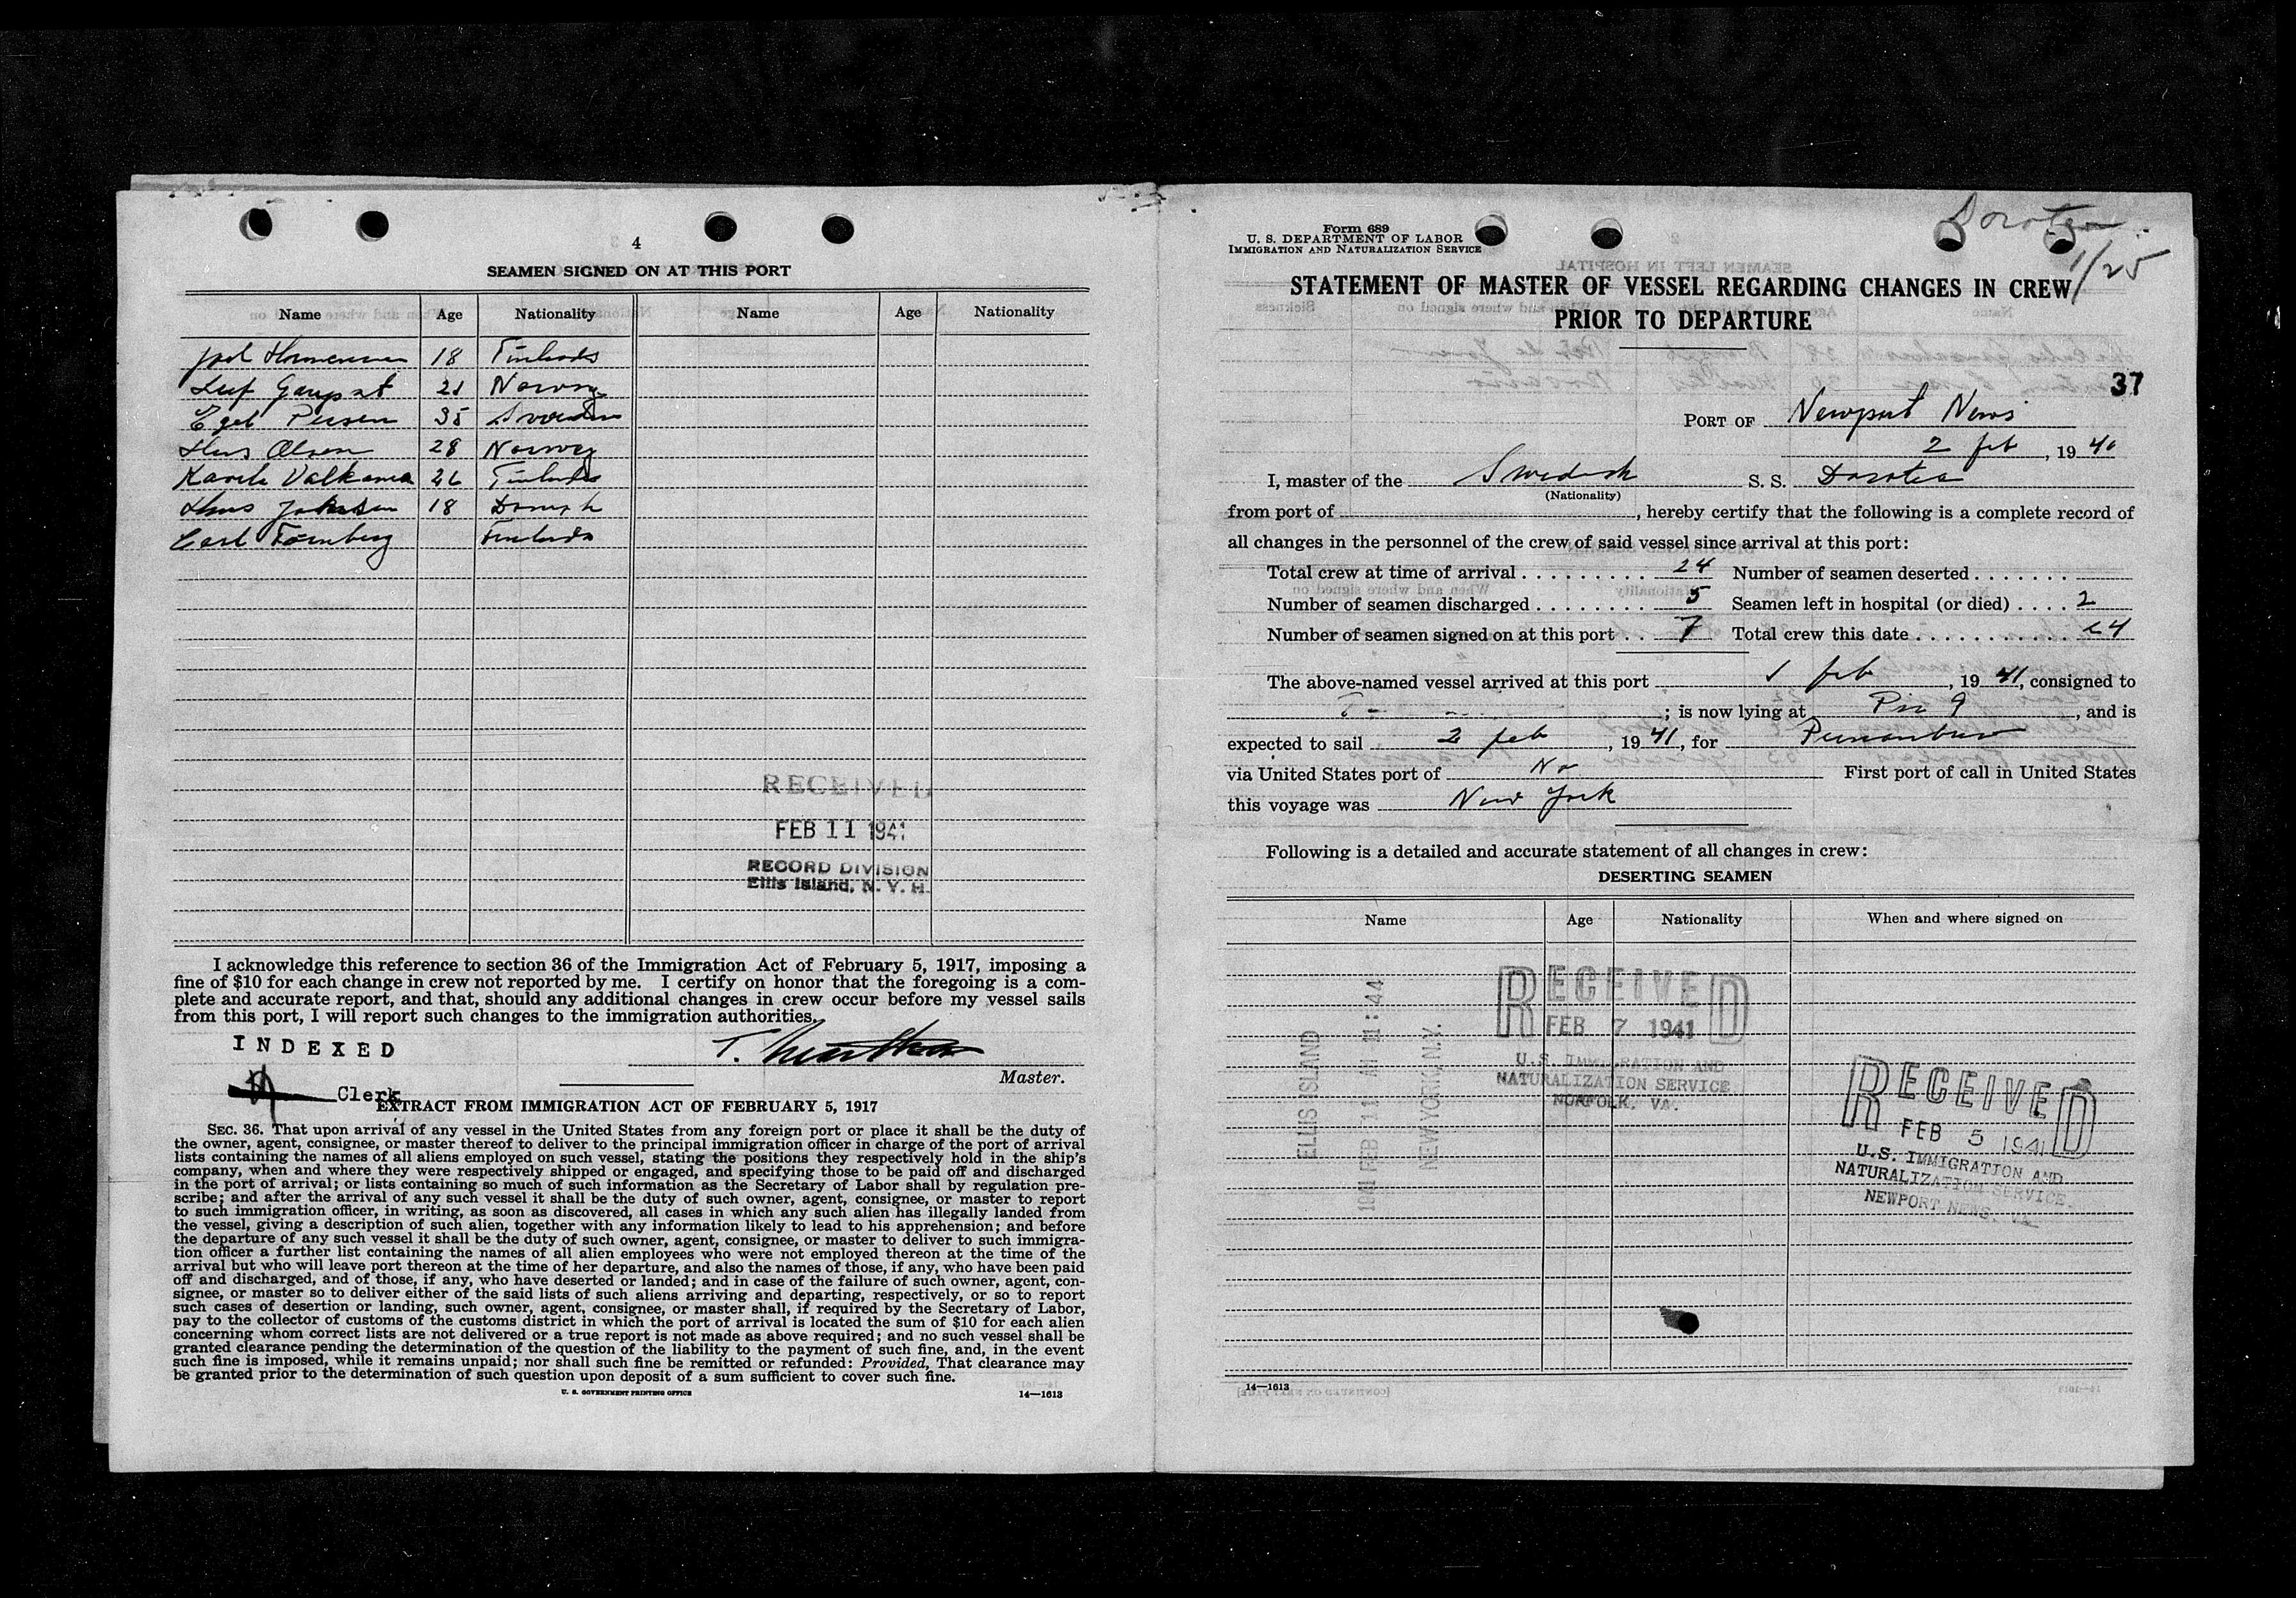 4
SEAMEN SIGNED ON AT THIS PORT
Name Age Nationality Name Age Nationality
18
21 Norway
35
Olsen 28 Norway
Valkama 26
18
Carl
RECEIVED
FEB 11 1941
RECORD DIVISION
Ellis Island, N. Y. H.
I acknowledge this reference to section 36 of the Immigration Act of February 5, 1917, imposing a
fine of $10 for each change in crew not reported by me. I certify on honor that the foregoing is a com-
plete and accurate report, and that, should any additional changes in crew occur before my vessel sails
from this port, I will report such changes to the immigration authorities.
INDEXED
T.
Master.
Clerk
EXTRACT FROM IMMIGRATION ACT OF FEBRUARY 5, 1917
SEC. 36. That upon arrival of any vessel in the United States from any foreign port or place it shall be the duty of
the owner, agent, consignee, or master thereof to deliver to the principal immigration officer in charge of the port of arrival
lists containing the names of all aliens employed on such vessel, stating the positions they respectively hold in the ship's
company, when and where they were respectively shipped or engaged, and specifying those to be paid off and discharged
in the port of arrival; or lists containing so much of such information as the Secretary of Labor shall by regulation pre-
scribe; and after the arrival of any such vessel it shall be the duty of such owner, agent, consignee, or master to report
to such immigration officer, in writing, as soon as discovered, all cases in which any such alien has illegally landed from
the vessel, giving a description of such alien, together with any information likely to lead to his apprehension; and before
the departure of any such vessel it shall be the duty of such owner, agent, consignee, or master to deliver to such immigra-
tion officer a further list containing the names of all alien employees who were not employed thereon at the time of the
arrival but who will leave port thereon at the time of her departure, and also the names of those, if any, who have been paid
off and discharged, and of those, if any, who have deserted or landed; and in case of the failure of such owner, agent, con-
signee, or master so to deliver either of the said lists of such aliens arriving and departing, respectively, or so to report
such cases of desertion or landing, such owner, agent, consignee, or master shall, if required by the Secretary of Labor,
pay to the collector of customs of the customs district in which the port of arrival is located the sum of $10 for each alien
concerning whom correct lists are not delivered or a true report is not made as above required; and no such vessel shall be
granted clearance pending the determination of the question of the liability to the payment of such fine, and, in the event
such fine is imposed, while it remains unpaid; nor shall such fine be remitted or refunded: Provided, That clearance may
be granted prior to the determination of such question upon deposit of a sum sufficient to cover such fine.
U. S. GOVERNMENT PRINTING OFFICE 14—1613
Dorotea
1/25
Form 689
U. S. DEPARTMENT OF LABOR
IMMIGRATION AND NATURALIZATION SERVICE
STATEMENT OF MASTER OF VESSEL REGARDING CHANGES IN CREW
PRIOR TO DEPARTURE
37
PORT OF Newport News
2 feb, 19 40
I, master of the Swedish S. S. Dorotea
(Nationality)
from port of , hereby certify that the following is a complete record of
all changes in the personnel of the crew of said vessel since arrival at this port:
Total crew at time of arrival 24 Number of seamen deserted
Number of seamen discharged 5 Seamen left in hospital (or died) 2
Number of seamen signed on at this port 7 Total crew this date 24
The above-named vessel arrived at this port 1 feb, 19 41, consigned to
; is now lying at Pier 9, and is
expected to sail 2 feb, 19 41, for
via United States port of No First port of call in United States
this voyage was New York
Following is a detailed and accurate statement of all changes in crew:
DESERTING SEAMEN
Name Age Nationality When and where signed on
RECEIVED
FEB 7 1941
U.S. IMMIGRATION AND
NATURALIZATION SERVICE
NORFOLK, VA.
ELLIS ISLAND
1941 FEB 11 AM 11:44
NEW YORK, N.Y.
RECEIVED
FEB 5 1941
U.S. IMMIGRATION AND
NATURALIZATION SERVICE
NEWPORT NEWS, VA.
14—1613